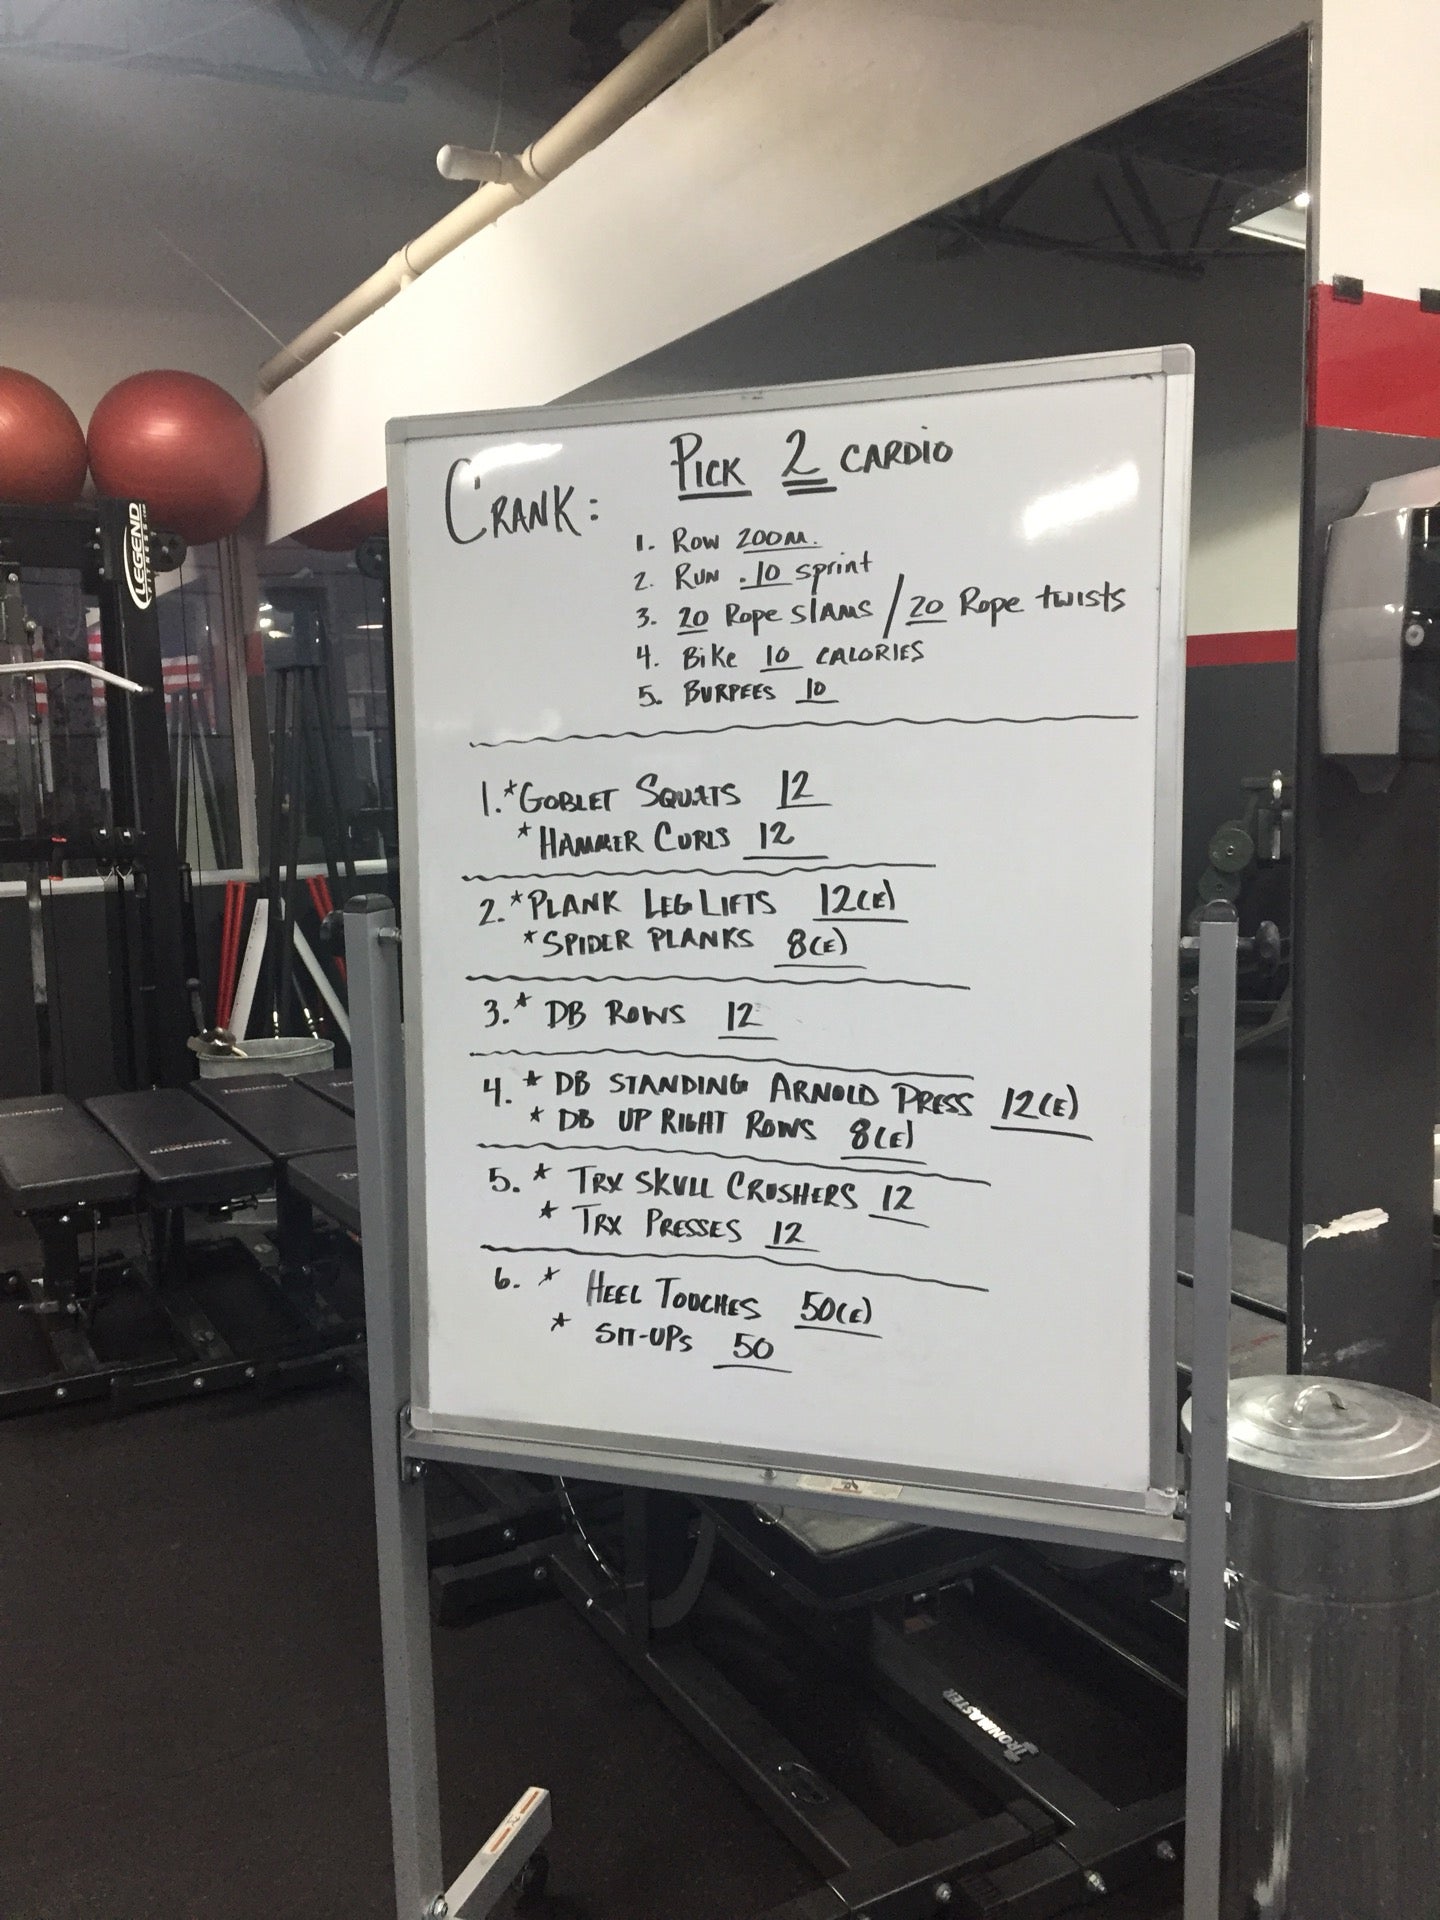 CRANK: PICK 2 CARDIO
1. ROW 200M.
2. RUN .10 sprint
3. 20 Rope slams / 20 Rope twists
4. Bike 10 CALORIES
5. BURPEES 10
1. *GOBLET SQUATS 12
*HAMMER CURLS 12
2. *PLANK LEG LIFTS 12(E)
*SPIDER PLANKS 8(E)
3. * DB ROWS 12
4. * DB STANDING ARNOLD PRESS 12(E)
* DB UP RIGHT ROWS 8(E)
5. * TRX SKULL CRUSHERS 12
* TRX PRESSES 12
6. * HEEL TOUCHES 50(E)
* SIT-UPS 50
LEGEND
FITNESS
IRONMASTER
IRONMASTER